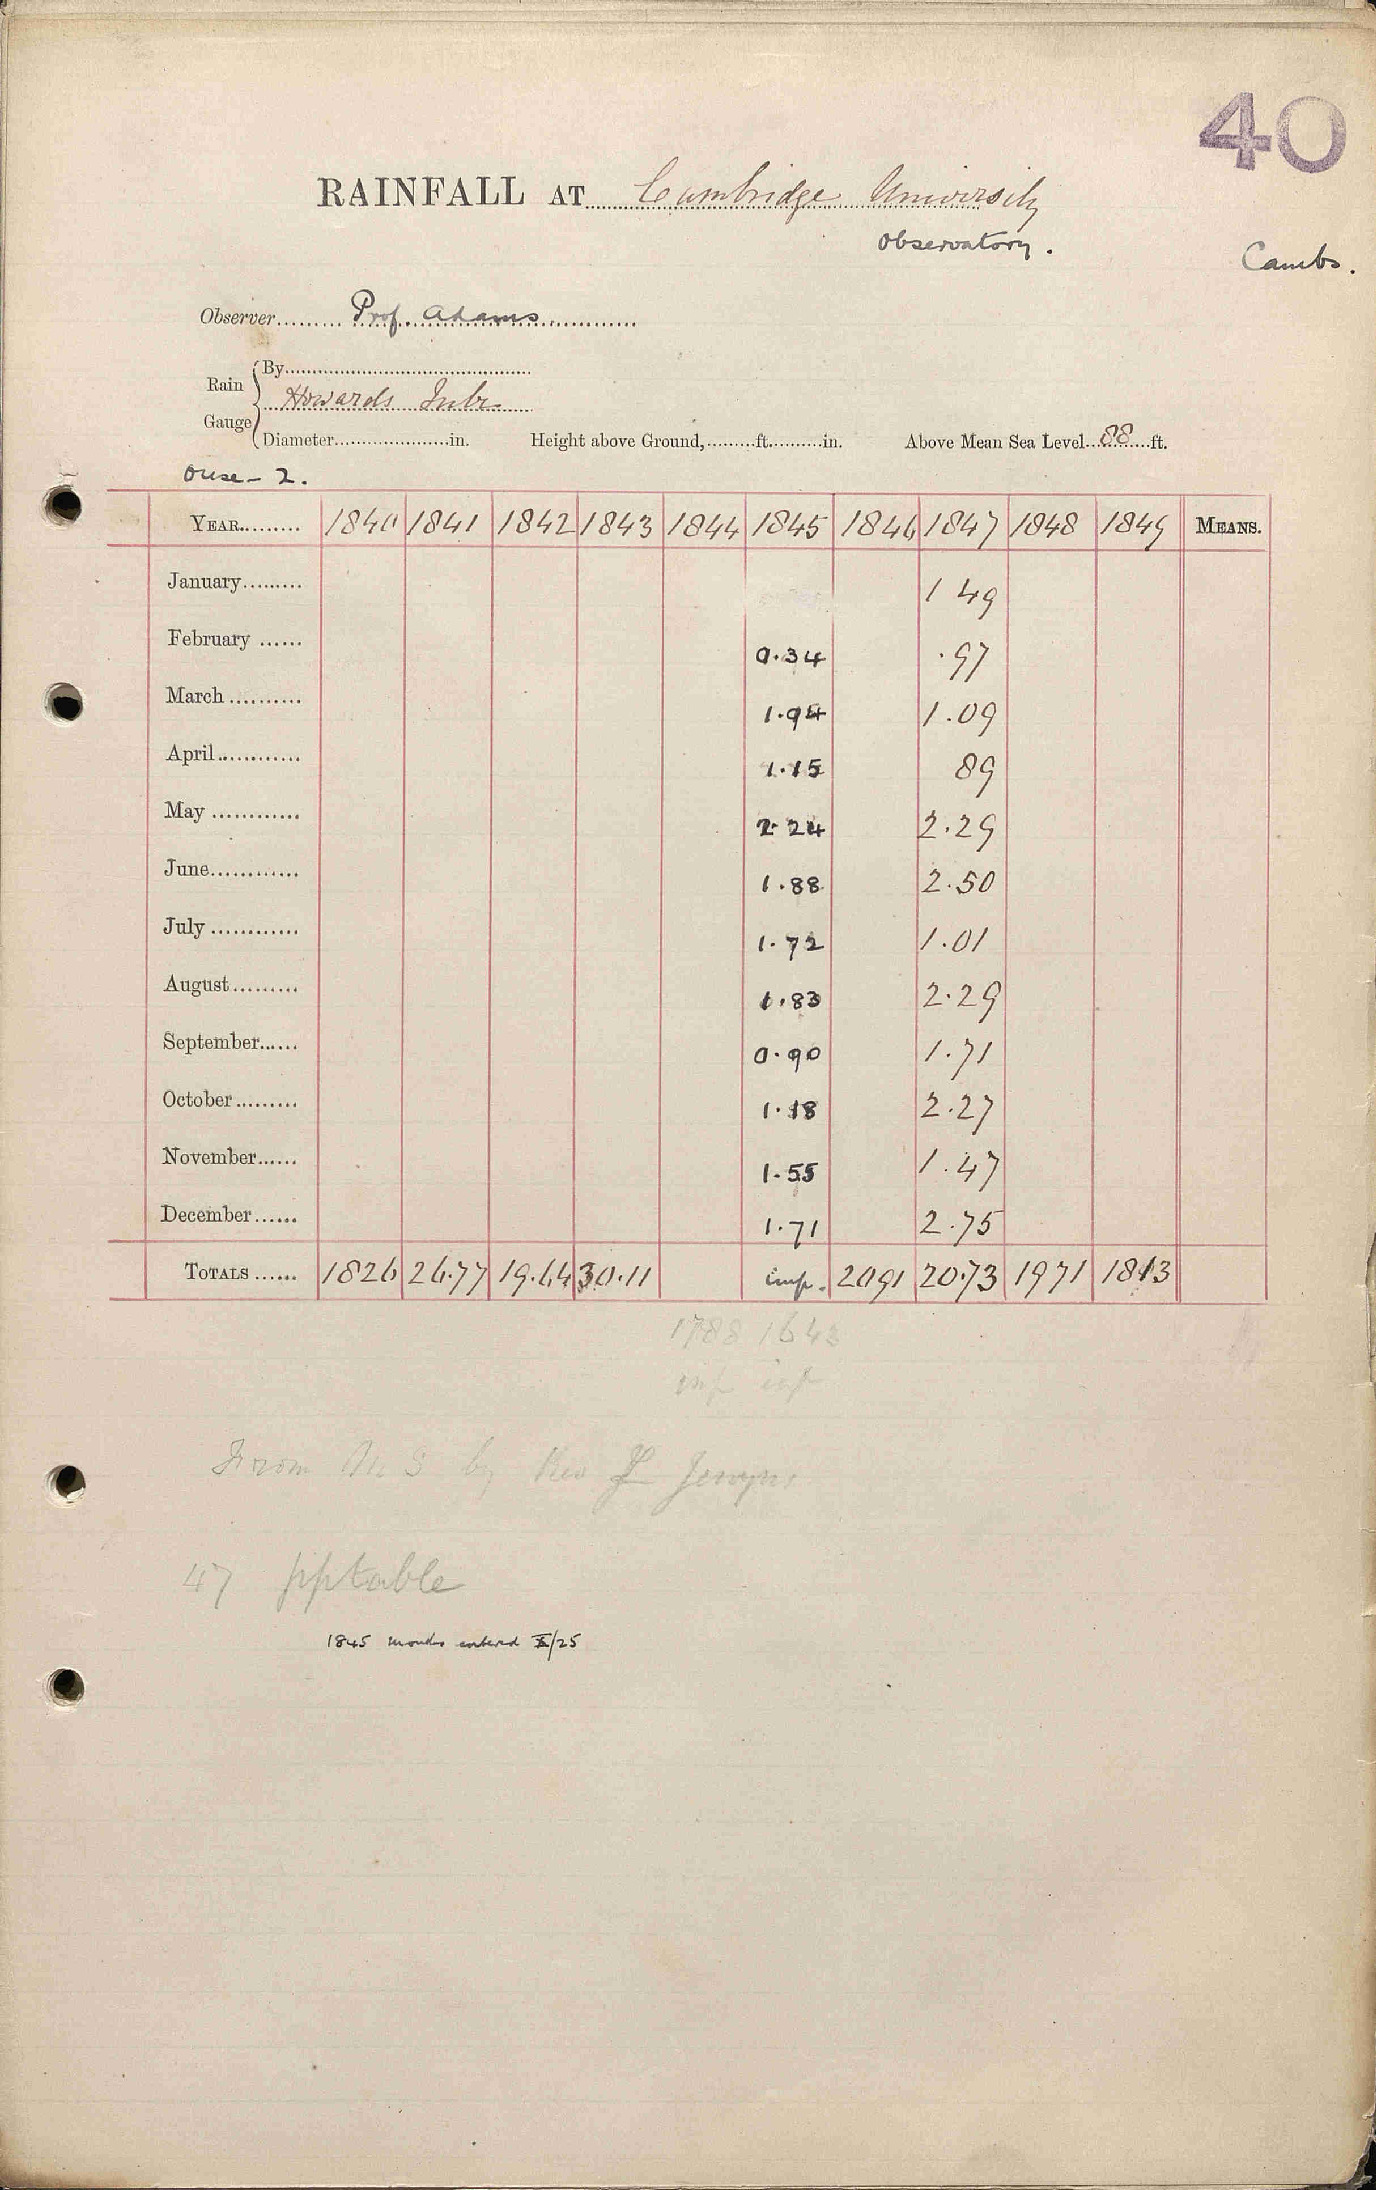 40
RAINFALL AT Cambridge University
Observatory.
Cambs.
Observer......... Prof. Adams
Rain Gauge
By
Howards Tube
Diameter......in. Height above Ground,.........ft..........in. Above Mean Sea Level...88...ft.
Ouse - 2.
YEAR......... 1840 1841 1842 1843 1844 1845 1846 1847 1848 1849 MEANS.
January......... 1 49
February ...... 0.34 .97
March .......... 1.94 1.09
April............ 1.15 89
May ............ 2.24 2.29
June............ 1.88 2.50
July ............ 1.72 1.01
August......... 1.83 2.29
September...... 0.90 1.71
October......... 1.18 2.27
November...... 1.55 1.47
December...... 1.71 2.75
TOTALS ...... 1826 26.77 19.64 30.11 imp. 2091 20.73 1971 1813
1788 1643
inf inf
From MS by Rev L Jenyns
47 pptable
1845 months entered X/25